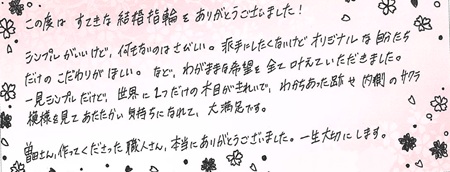 この度は すてきな 結婚指輪を ありがとうございました！
シンプルがいいけど、何もないのはさびしい。派手にしたくないけどオリジナルな自分たち
だけのこだわりがほしい。など、わがままな希望を全て叶えていただきました。
一見シンプルだけど、世界に1つだけの木目がきれいで、わかちあった跡や内側のサクラ
模様を見てあたたかい気持ちになれて、大満足です。
曽田さん、作ってくださった職人さん、本当にありがとうございました。一生大切にします。